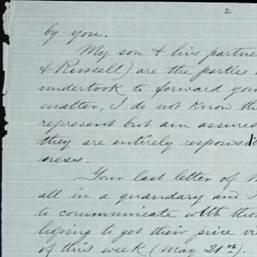 2
by you.
My son & his partne
& Russell) are the parties
undertook to forward you
matter, I do not know th
represent but am assure
they are entirely respons
ness.
Your last letter of
all in a quandary and
to communicate with thos
hoping to get their price
of this week (May 21st).